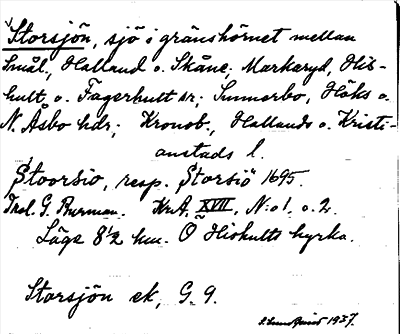 Storsjön, sjö i gränshörnet mellan
Smål., Halland o. Skåne; Markaryd, His-
hult o. Fagerhult sr; Sunnerbo, Höks o.
N. Åsbo hdr; Kronob., Hallands o. Kristi-
anstads l.
Stoorsio, resp. Storsiö 1695.
Trol. G. Burman. KrA, XVII, N:o 1. o. 2.
Läge 8½ km. Ö Hishults kyrka.
Storsjön ek, G. 9.
1937.